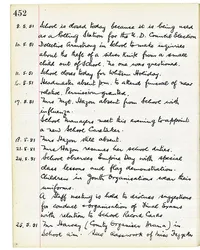 452
8.5.51 School is closed today because it is being used
as a Polling Station for the R.D. Council Election
10.5.51 Detective Armstrong in School to make inquiries
about the theft of a silver knife from a small
child out of School. No one was questioned.
11.5.51 School closes today for Whitsun Holiday.
Headmaster absent p.m. to attend funeral of near
relative. Permission granted.
17.5.51 Mrs Mgt. absent from School with
influenza.
School managers meet this evening to appoint
a new School Caretaker.
18.5.51 Mrs still absent.
21.5.51 Mrs resumes her school duties.
24.5.51 School observes Empire Day with special
class lessons and flag demonstration.
Children in Youth Organisations wear their
uniforms.
Staff meeting is held to discuss suggestions
for conduct & organisation of
with relation to School Record Cards
25.5.51 Mr (County Organiser Drama) in
School a.m. classwork of Miss